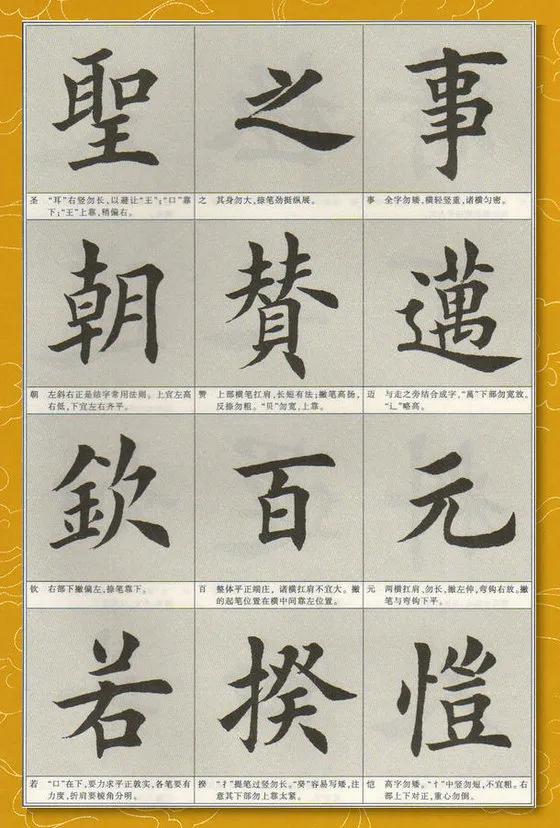 聖 之 事
圣 “耳”右竖勿长,以避让“王”;“口”靠
下;“王”上靠,稍偏右。
之 其身勿大,捺笔劲挺纵展。
事 全字勿矮,横轻竖重,诸横匀密。
朝 贊 邁
朝 左斜右正是结字常用法则。上宜左高
右低,下宜左右齐平。
赞 上部横笔扛肩,长短有法;撇笔高扬,
反捺勿粗。“贝”勿宽,上靠。
迈 与走之旁结合成字,“萬”下部勿宽放。
“辶”略高。
欽 百 元
钦 右部下撇偏左,捺笔靠下。
百 整体平正端庄,诸横扛肩不宜大。撇
的起笔位置在横中间靠左位置。
元 两横扛肩、勿长,撇左伸,弯钩右放。撇
笔与弯钩下平。
若 揆 愷
若 “口”在下,要力求平正敦实,各笔要有
力度,折肩要棱角分明。
揆 “扌”提笔过竖勿长。“癸”容易写矮,注
意其下部勿上靠太紧。
恺 高字勿矮。“忄”中竖勿短,不宜粗。右
部上下对正,重心勿倒。